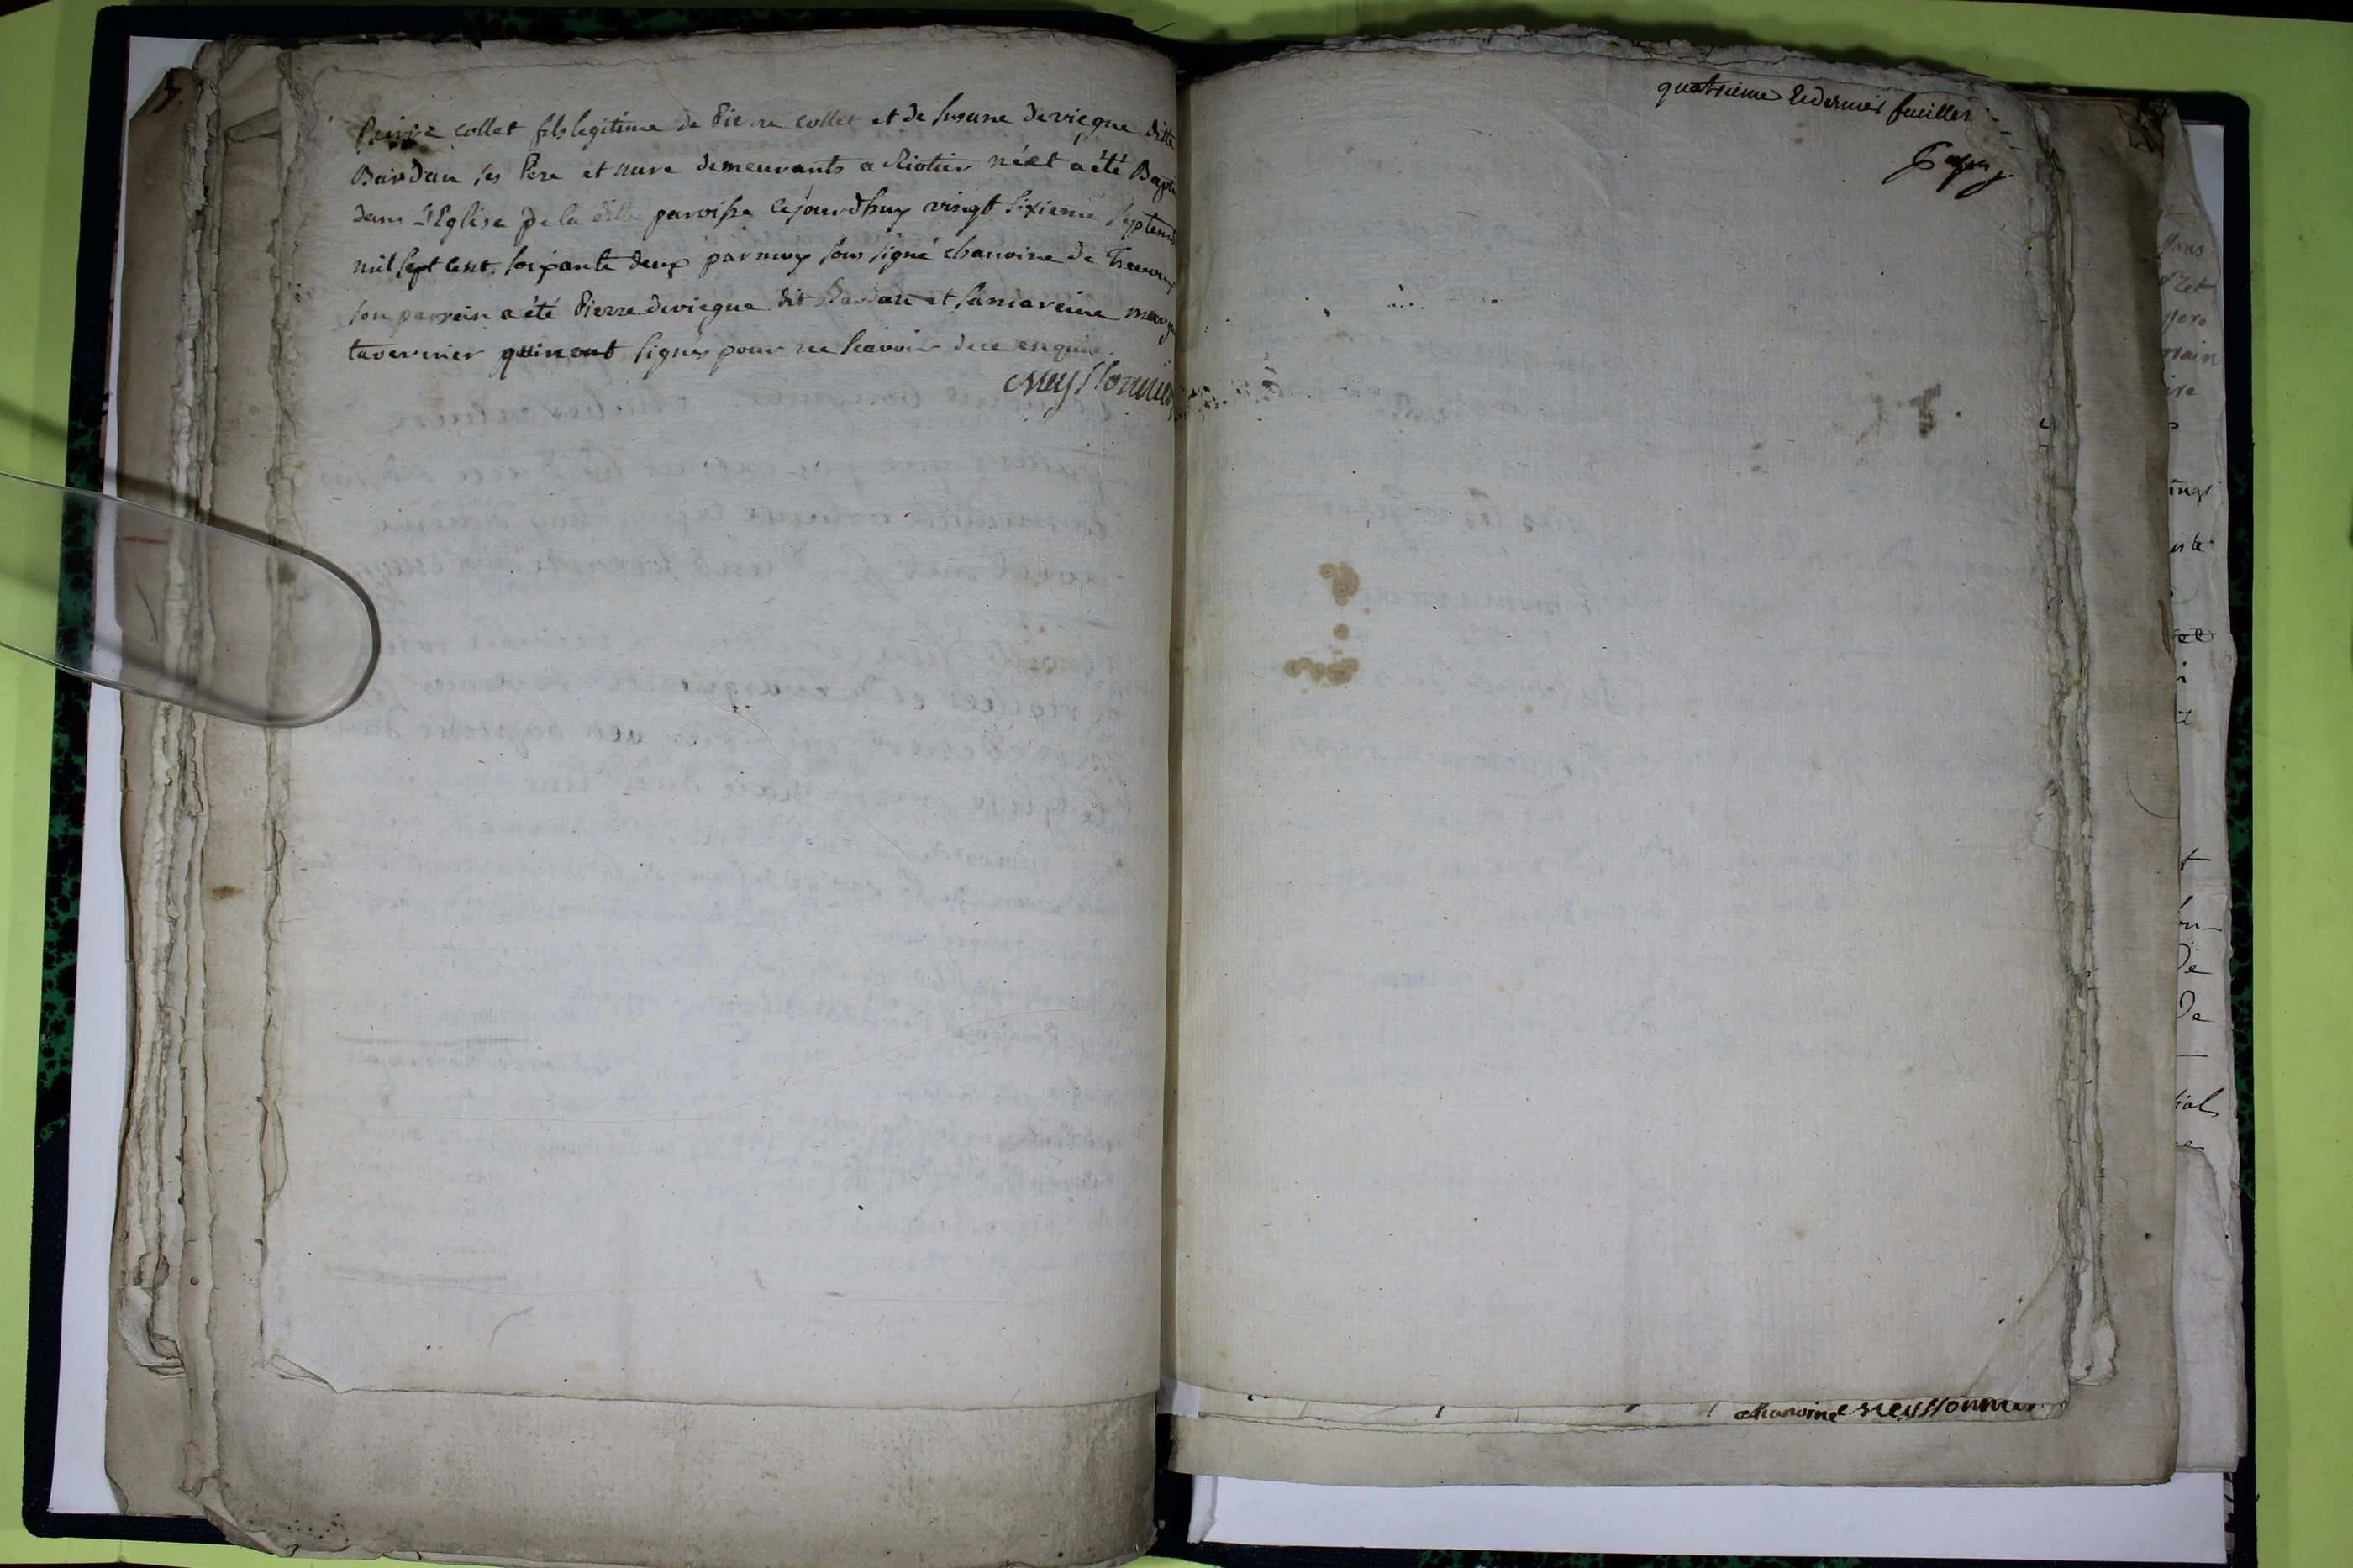 Pierre collet fils legitime de Pierre collet et de susane deviegue ditte
Bardan ses Pere et mere demeurants a Riotier né et a été Bapti
dans L'Eglise de la ditte paroisse cejourdhuy vingt sixieme septemb
mil sept cent soixante deux par moy sous signé chanoine de Trevoux
son parrein a été Pierre deviegue dit Bardan et sa mareine marg
tavernier qui n'ont signés pour ne scavoir de ce enquis.
Meyssonnier
quatrieme Et dernier feuillet
chanoine Meyssonnier